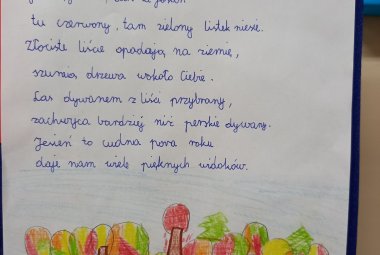 tu czerwony, tam zielony listek niesie.
Złociste liście opadają na ziemię,
szumią drzewa wokoło Ciebie.
Las dywanem z liści przybrany,
zachwyca bardziej niż perskie dywany.
Jesień to cudna pora roku
daje nam wiele pięknych widoków.